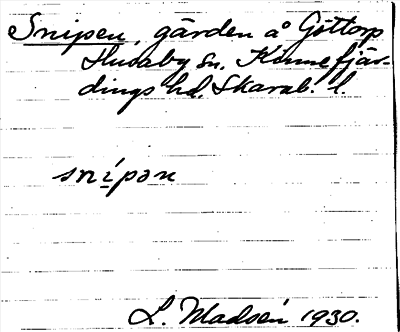 Snipen, gården å Göttorp
Husaby sn. Kinnefjär-
dings hd. Skarab. l.
snípən
L. Madsén 1930.